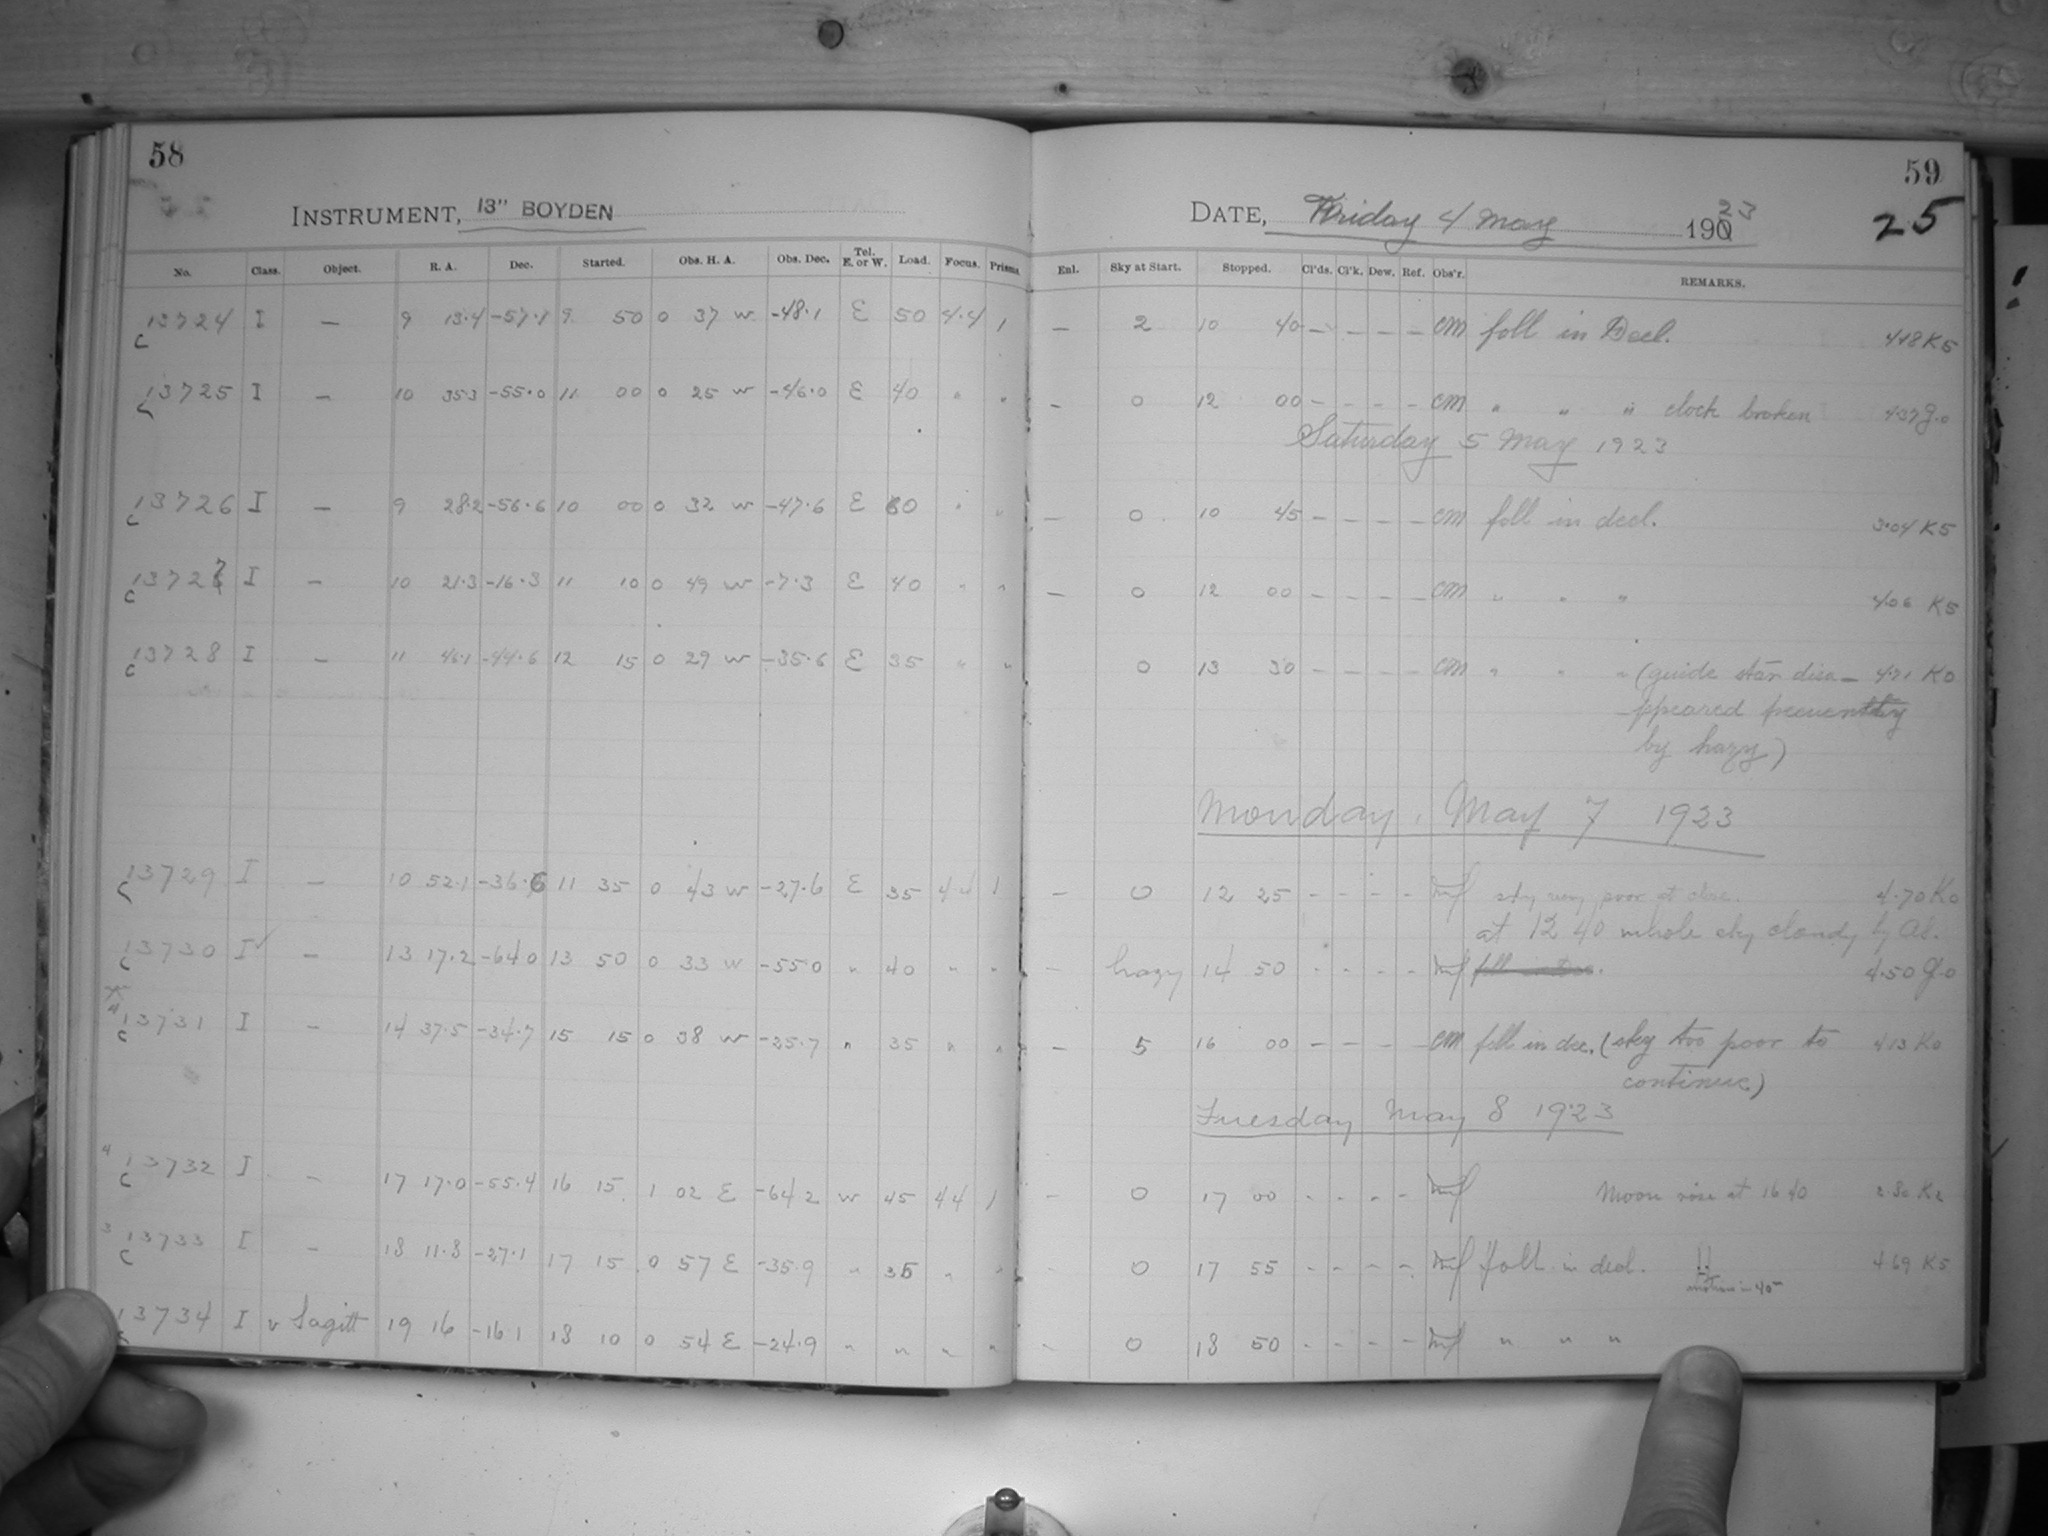 58
INSTRUMENT, 13" BOYDEN
No. Class. Object. R. A. Dec. Started. Obs. H. A. Obs. Dec. Tel. E. or W. Load. Focus. Prisms
13724 I — 9 13.4 -57.1 9 50 0 37 w -48.1 E 50 4.4 1
C
13725 I — 10 35.3 -55.0 11 00 0 25 w -46.0 E 40 " "
C
13726 I — 9 28.2 -56.6 10 00 0 32 w -47.6 E 60 " "
C
13727 I — 10 21.3 -16.3 11 10 0 49 w -7.3 E 40 " "
C
13728 I — 11 46.1 -44.6 12 15 0 29 w -35.6 E 35 " "
C
13729 I — 10 52.1 -36.6 11 35 0 43 w -27.6 E 35 4.4 1
C
13730 I✓ — 13 17.2 -64.0 13 50 0 33 w -55.0 " 40 " "
C
13731 I — 14 37.5 -34.7 15 15 0 38 w -25.7 " 35 " "
C
4 13732 I — 17 17.0 -55.4 16 15 1 02 E -64.2 w 45 4.4 1
C
3 13733 I — 18 11.8 -27.1 17 15 0 57 E -35.9 " 35 " "
C
13734 I v Sagitt 19 16 -16.1 18 10 0 54 E -24.9 " " " "
59
DATE, Friday 4 May 1923
25
Enl. Sky at Start. Stopped. Cl'ds. Cl'k. Dew. Ref. Obs'r. REMARKS.
— 2 10 40 — — — — CM foll in Decl. 4.18 K5
— 0 12 00 — — — — CM " " " clock broken 4.37 G.0
Saturday 5 May 1923
— 0 10 45 — — — — CM foll in decl. 3.04 K5
— 0 12 00 — — — — CM " " " 4.06 K5
0 13 30 — — — — CM " " " (guide star disa- 4.71 K0
ppeared
by hazy)
Monday, May 7 1923
— 0 12 25 - - - - sky very poor at close. 4.70 K0
at 12 40 whole sky cloudy by
— hazy 14 50 - - - - 4.50 G.0
— 5 16 00 — — — — CM foll in dec. (sky too poor to 4.13 K0
continue)
Tuesday May 8 1923
— 0 17 00 - - - - Moon rise at 16 40 2.80 K2
0 17 55 - - - - foll in decl. 4.69 K5
motion in 40s
— 0 18 50 - - - - " " "